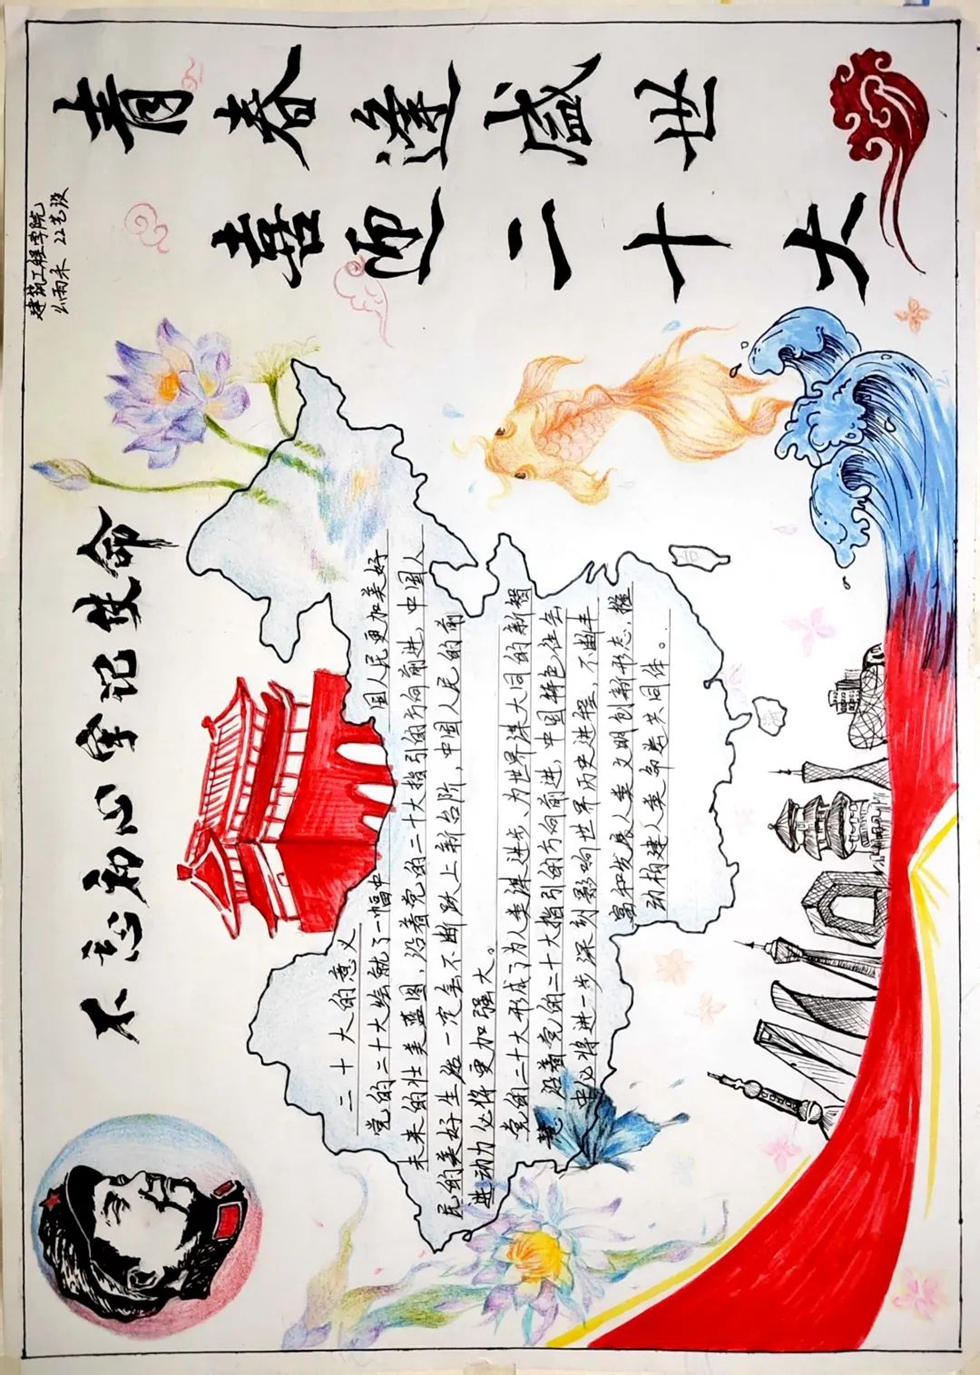 青春逢盛世
喜迎二十大
建筑工程学院
雨禾 22艺设
不忘初心牢记使命
二十大的意义
党的二十大绘就了一幅中国人民更加美好
未来的壮美蓝图,沿着党的二十大指引的方向前进,中国人
民的美好生活一定会不断跃上新台阶,中国人民的前
进动力必将更加强大。
党的二十大形成了为人类谋进步、为世界谋大同的新智
慧 沿着党的二十大指引的方向前进,中国特色社会
必将进一步深刻影响世界历史进程,不断丰
富和发展人类文明创新形态,推
动构建人类命运共同体。